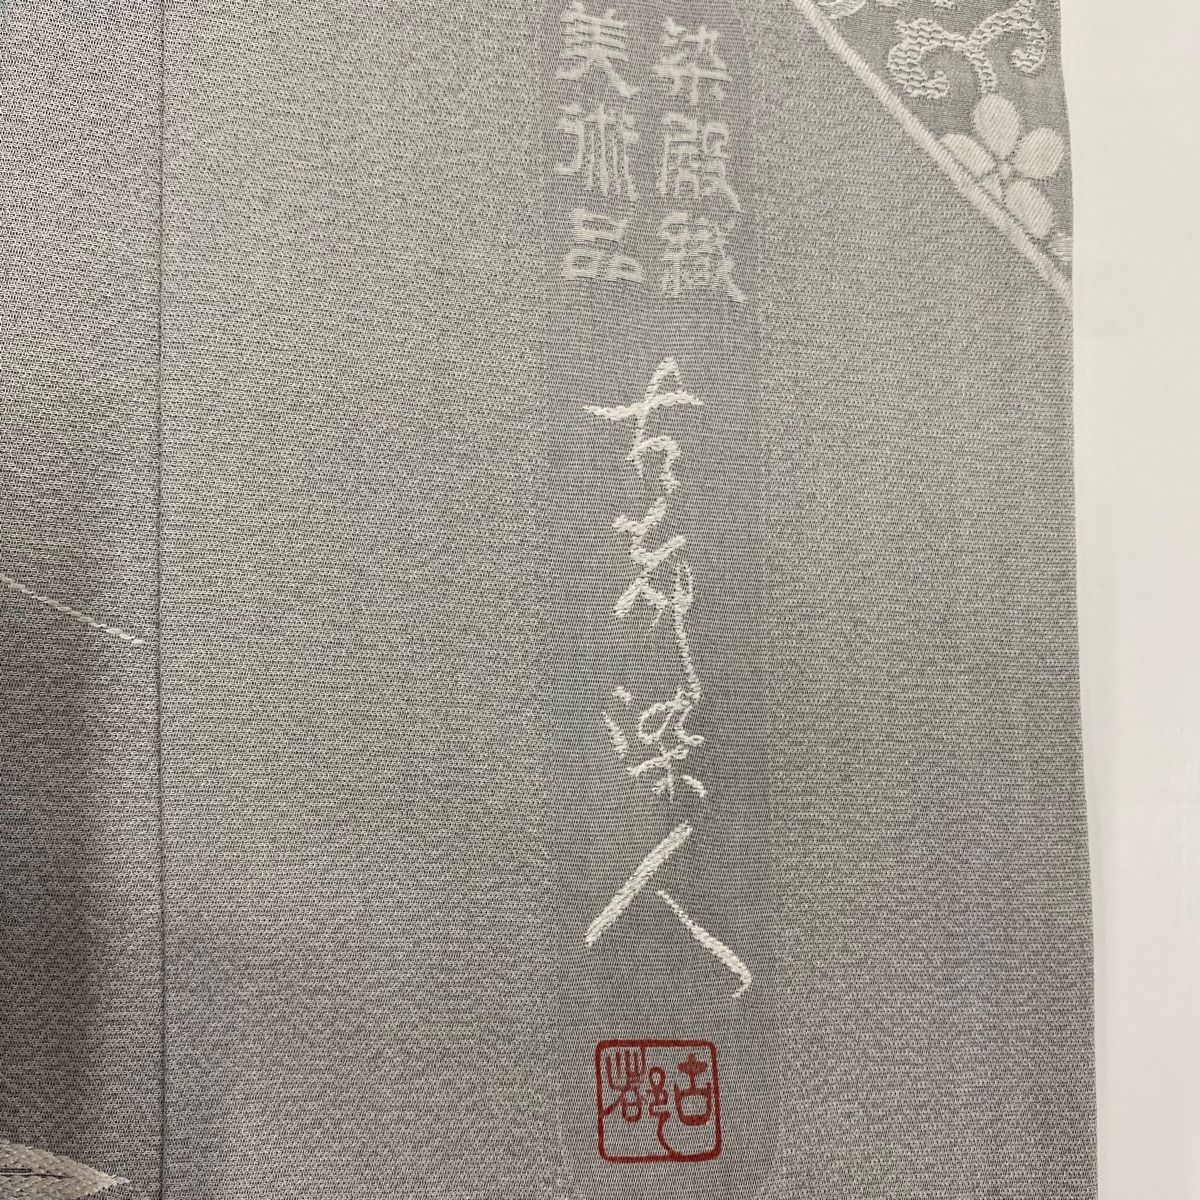 染殿織
美術品
古都染人
古都